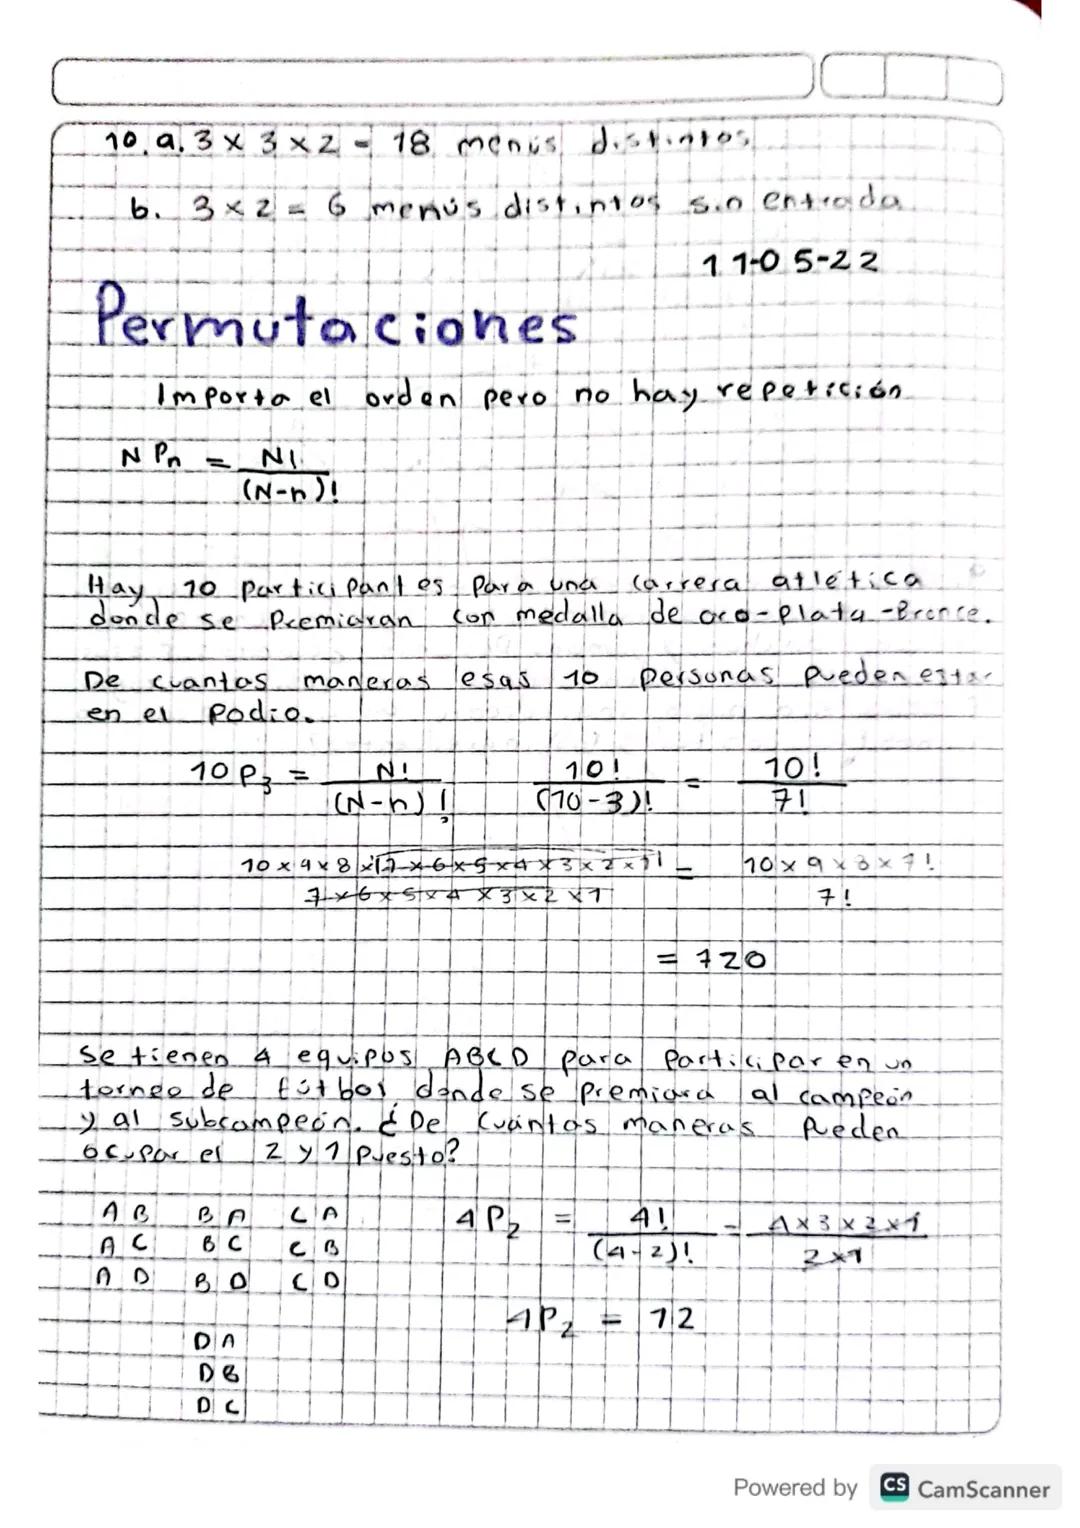 10. a. 3 x 3 x 2 = 18 menús distintos
b. 3 x 2 = 6 menús distintos sin entrada
11-05-22
Permutaciones
Importa el orden pero no hay repetición
N Pn = N!
(N-n)!
Hay 10 participantes para una carrera atlética
donde se Premiaran con medalla de oro-Plata-Bronce.
De cuantas maneras esas 10 personas pueden estar
en el Podio.
10 P3 = N! 10! = 10!
(N-n)! (10-3)! 7!
10 x 9 x 8 x (7 x 6 x 5 x 4 x 3 x 2 x 1) = 10 x 9 x 8 x 7!
7 x 6 x 5 x 4 x 3 x 2 x 1 7!
= 720
Se tienen 4 equipos ABCD para Participar en un
torneo de fútbol donde se Premiara al campeón
y al subcampeón. ¿De Cuántas maneras Pueden
ocupar el 2 y 1 Puesto?
AB BA CA 4P2 = 4! = 4 x 3 x 2 x 1
AC BC CB (4-2)! 2x1
AD BD CD
4P2 = 12
DA
DB
DC
Powered by CS CamScanner